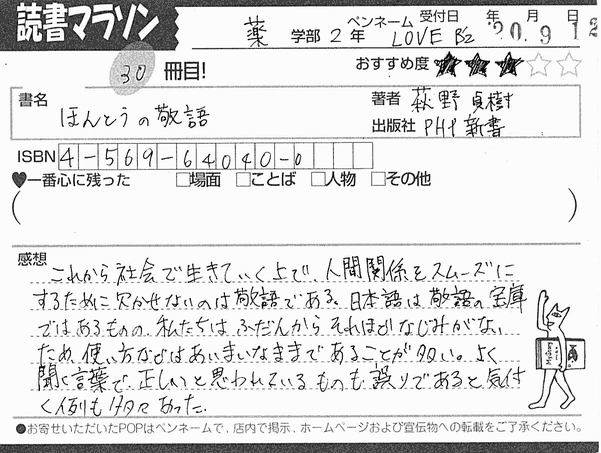 読書マラソン
薬 学部 2 年 ペンネーム LOVE B'z 受付日 '20.年 9 月 12 日
30 冊目!
おすすめ度 ★★★☆☆
書名 ほんとうの敬語
著者 萩野貞樹
出版社 PHP新書
ISBN 4-569-64040-0
♥一番心に残った □場面 □ことば □人物 □その他
( )
感想
これから社会で生きていく上で、人間関係をスムーズに
するために欠かせないのは敬語である。日本語は敬語の宝庫
ではあるものの、私たちは、ふだんからそれほどなじみがない
ため、使い方などはあいまいなままであることが多い。よく
聞く言葉で、正しいと思われているものも、誤りであると気付
く例も多々あった。
●お寄せいただいたPOPはペンネームで、店内で掲示、ホームページおよび宣伝物への転載をご了承ください。